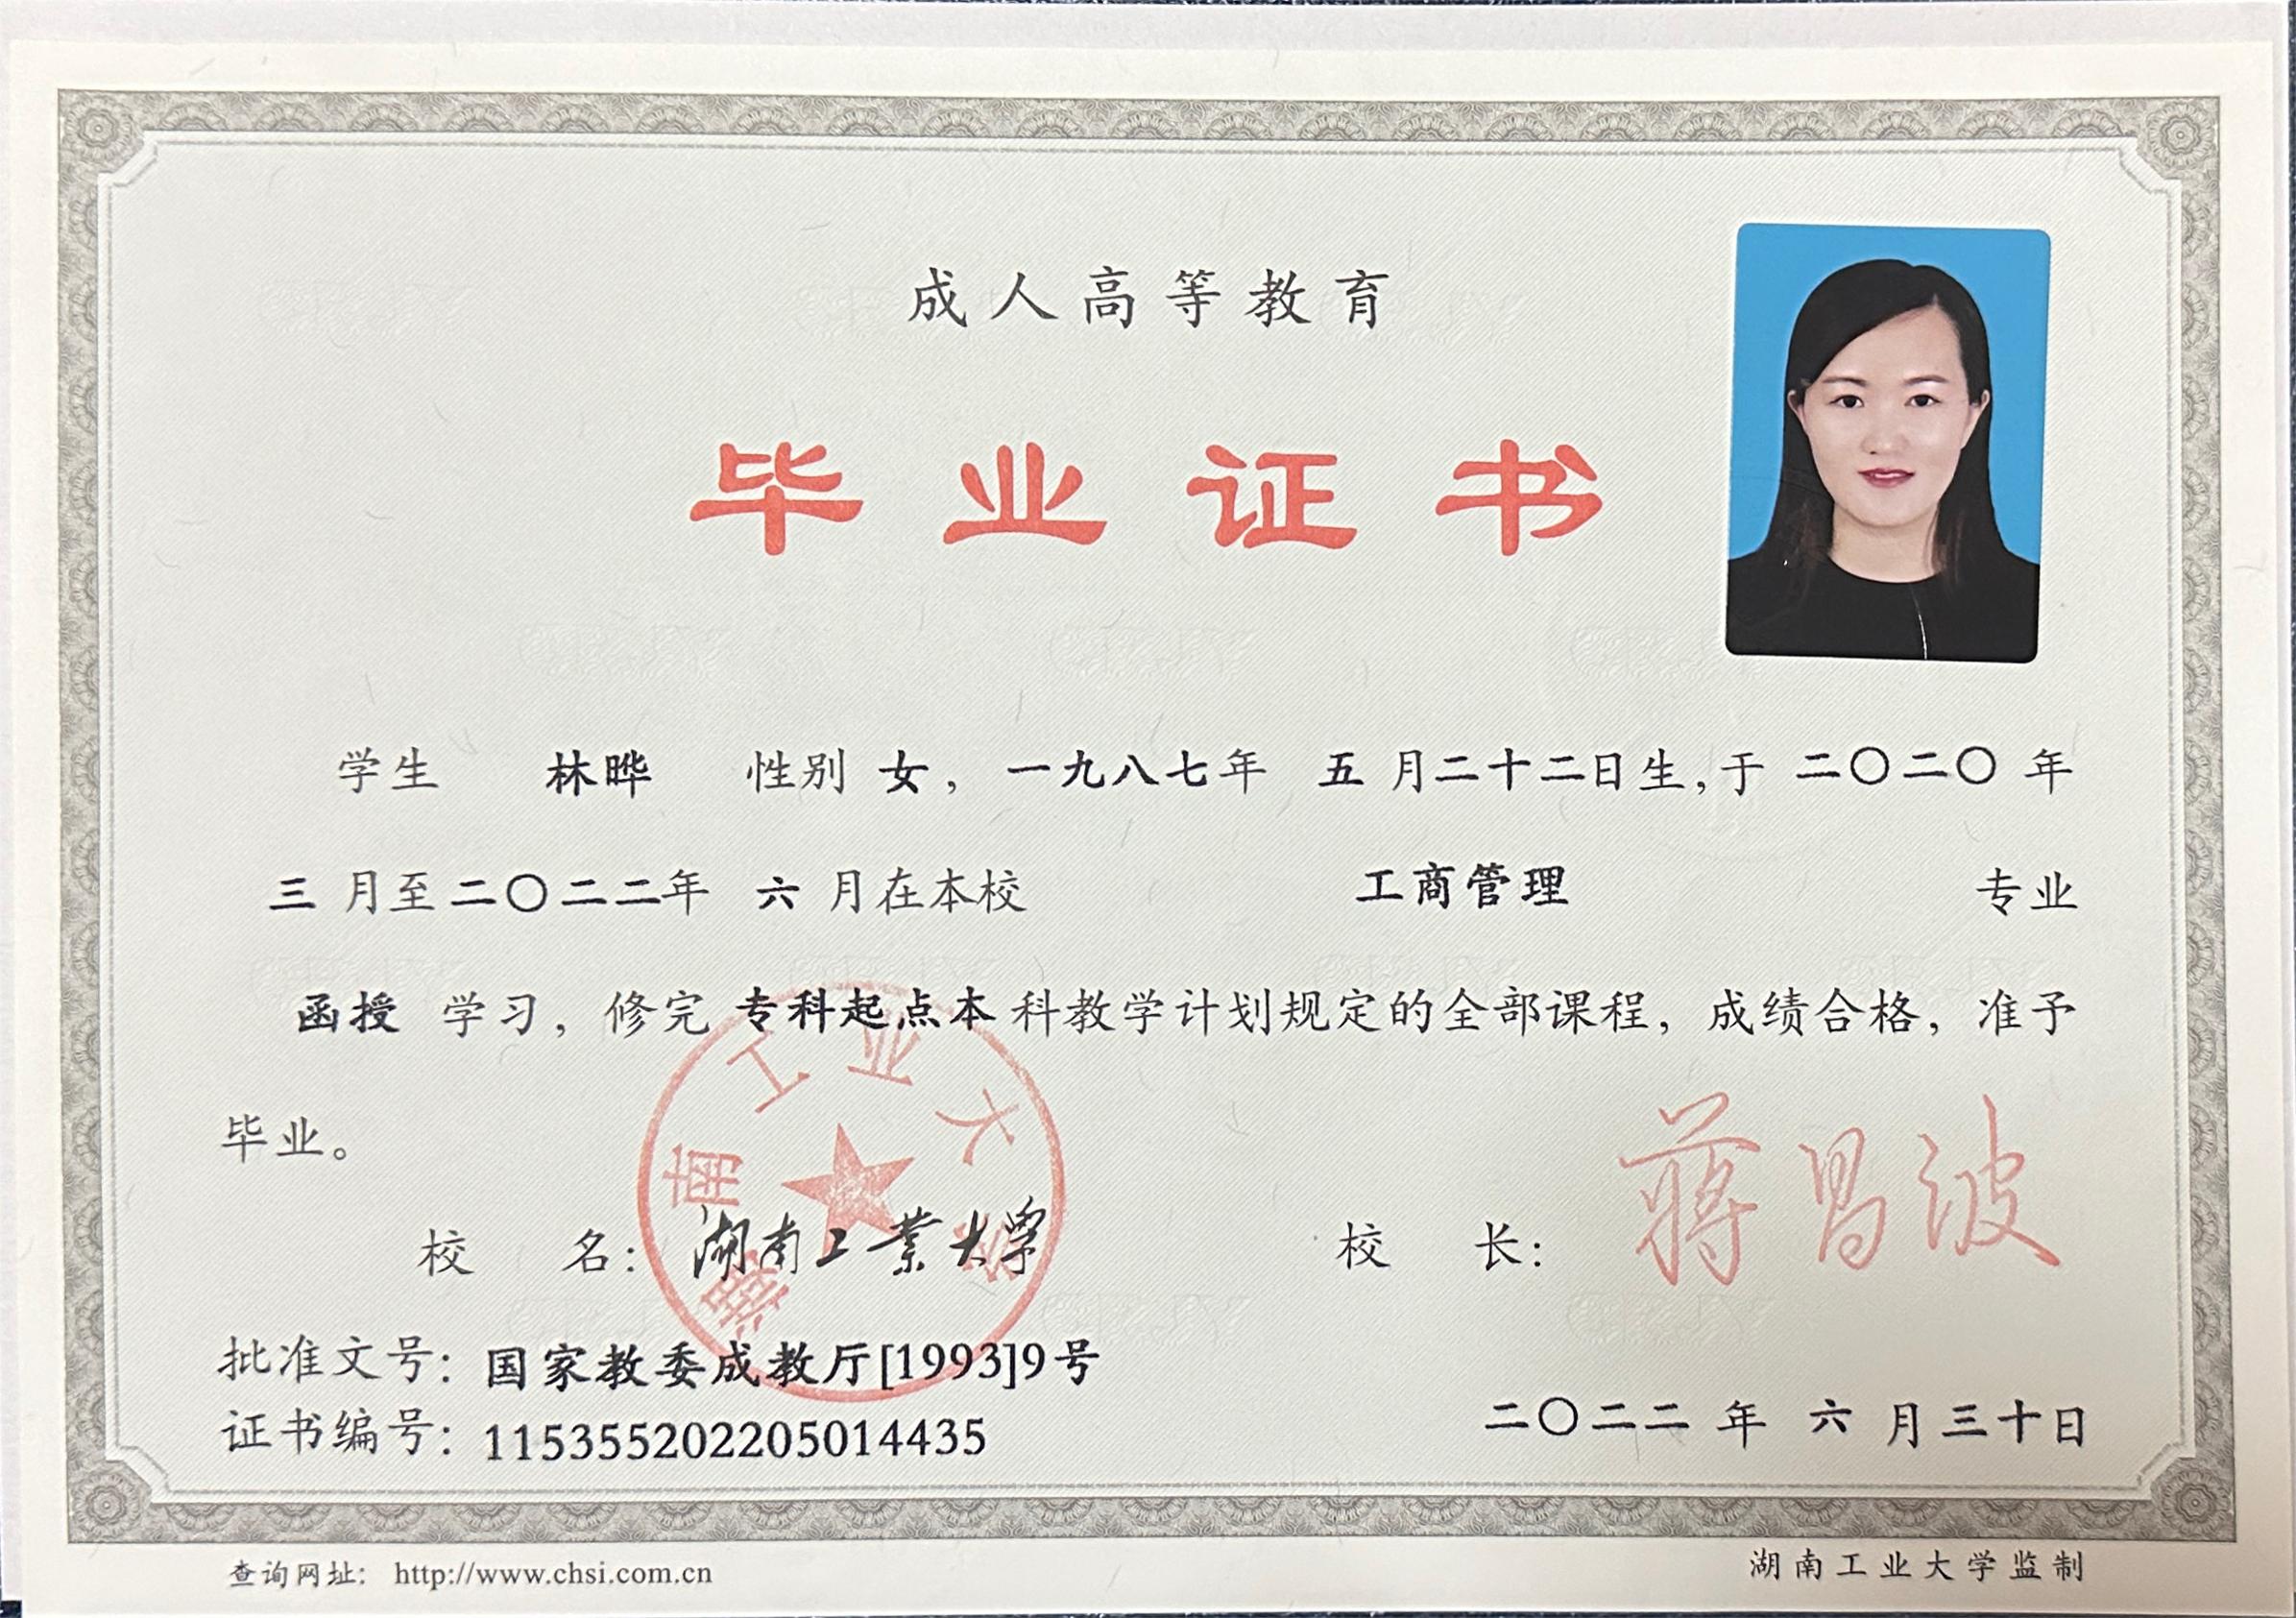 成人高等教育
毕业证书
学生 林晔 性别 女，一九八七年 五 月二十二日生，于 二〇二〇 年
三 月至二〇二二年 六 月在本校 工商管理 专业
函授 学习，修完 专科起点本 科教学计划规定的全部课程，成绩合格，准予
毕业。
湖南工业大学
校 名：湖南工業大学 校 长：蒋昌波
批准文号：国家教委成教厅[1993]9号
证书编号：115355202205014435
二〇二二 年 六 月三十日
查询网址：http://www.chsi.com.cn 湖南工业大学监制